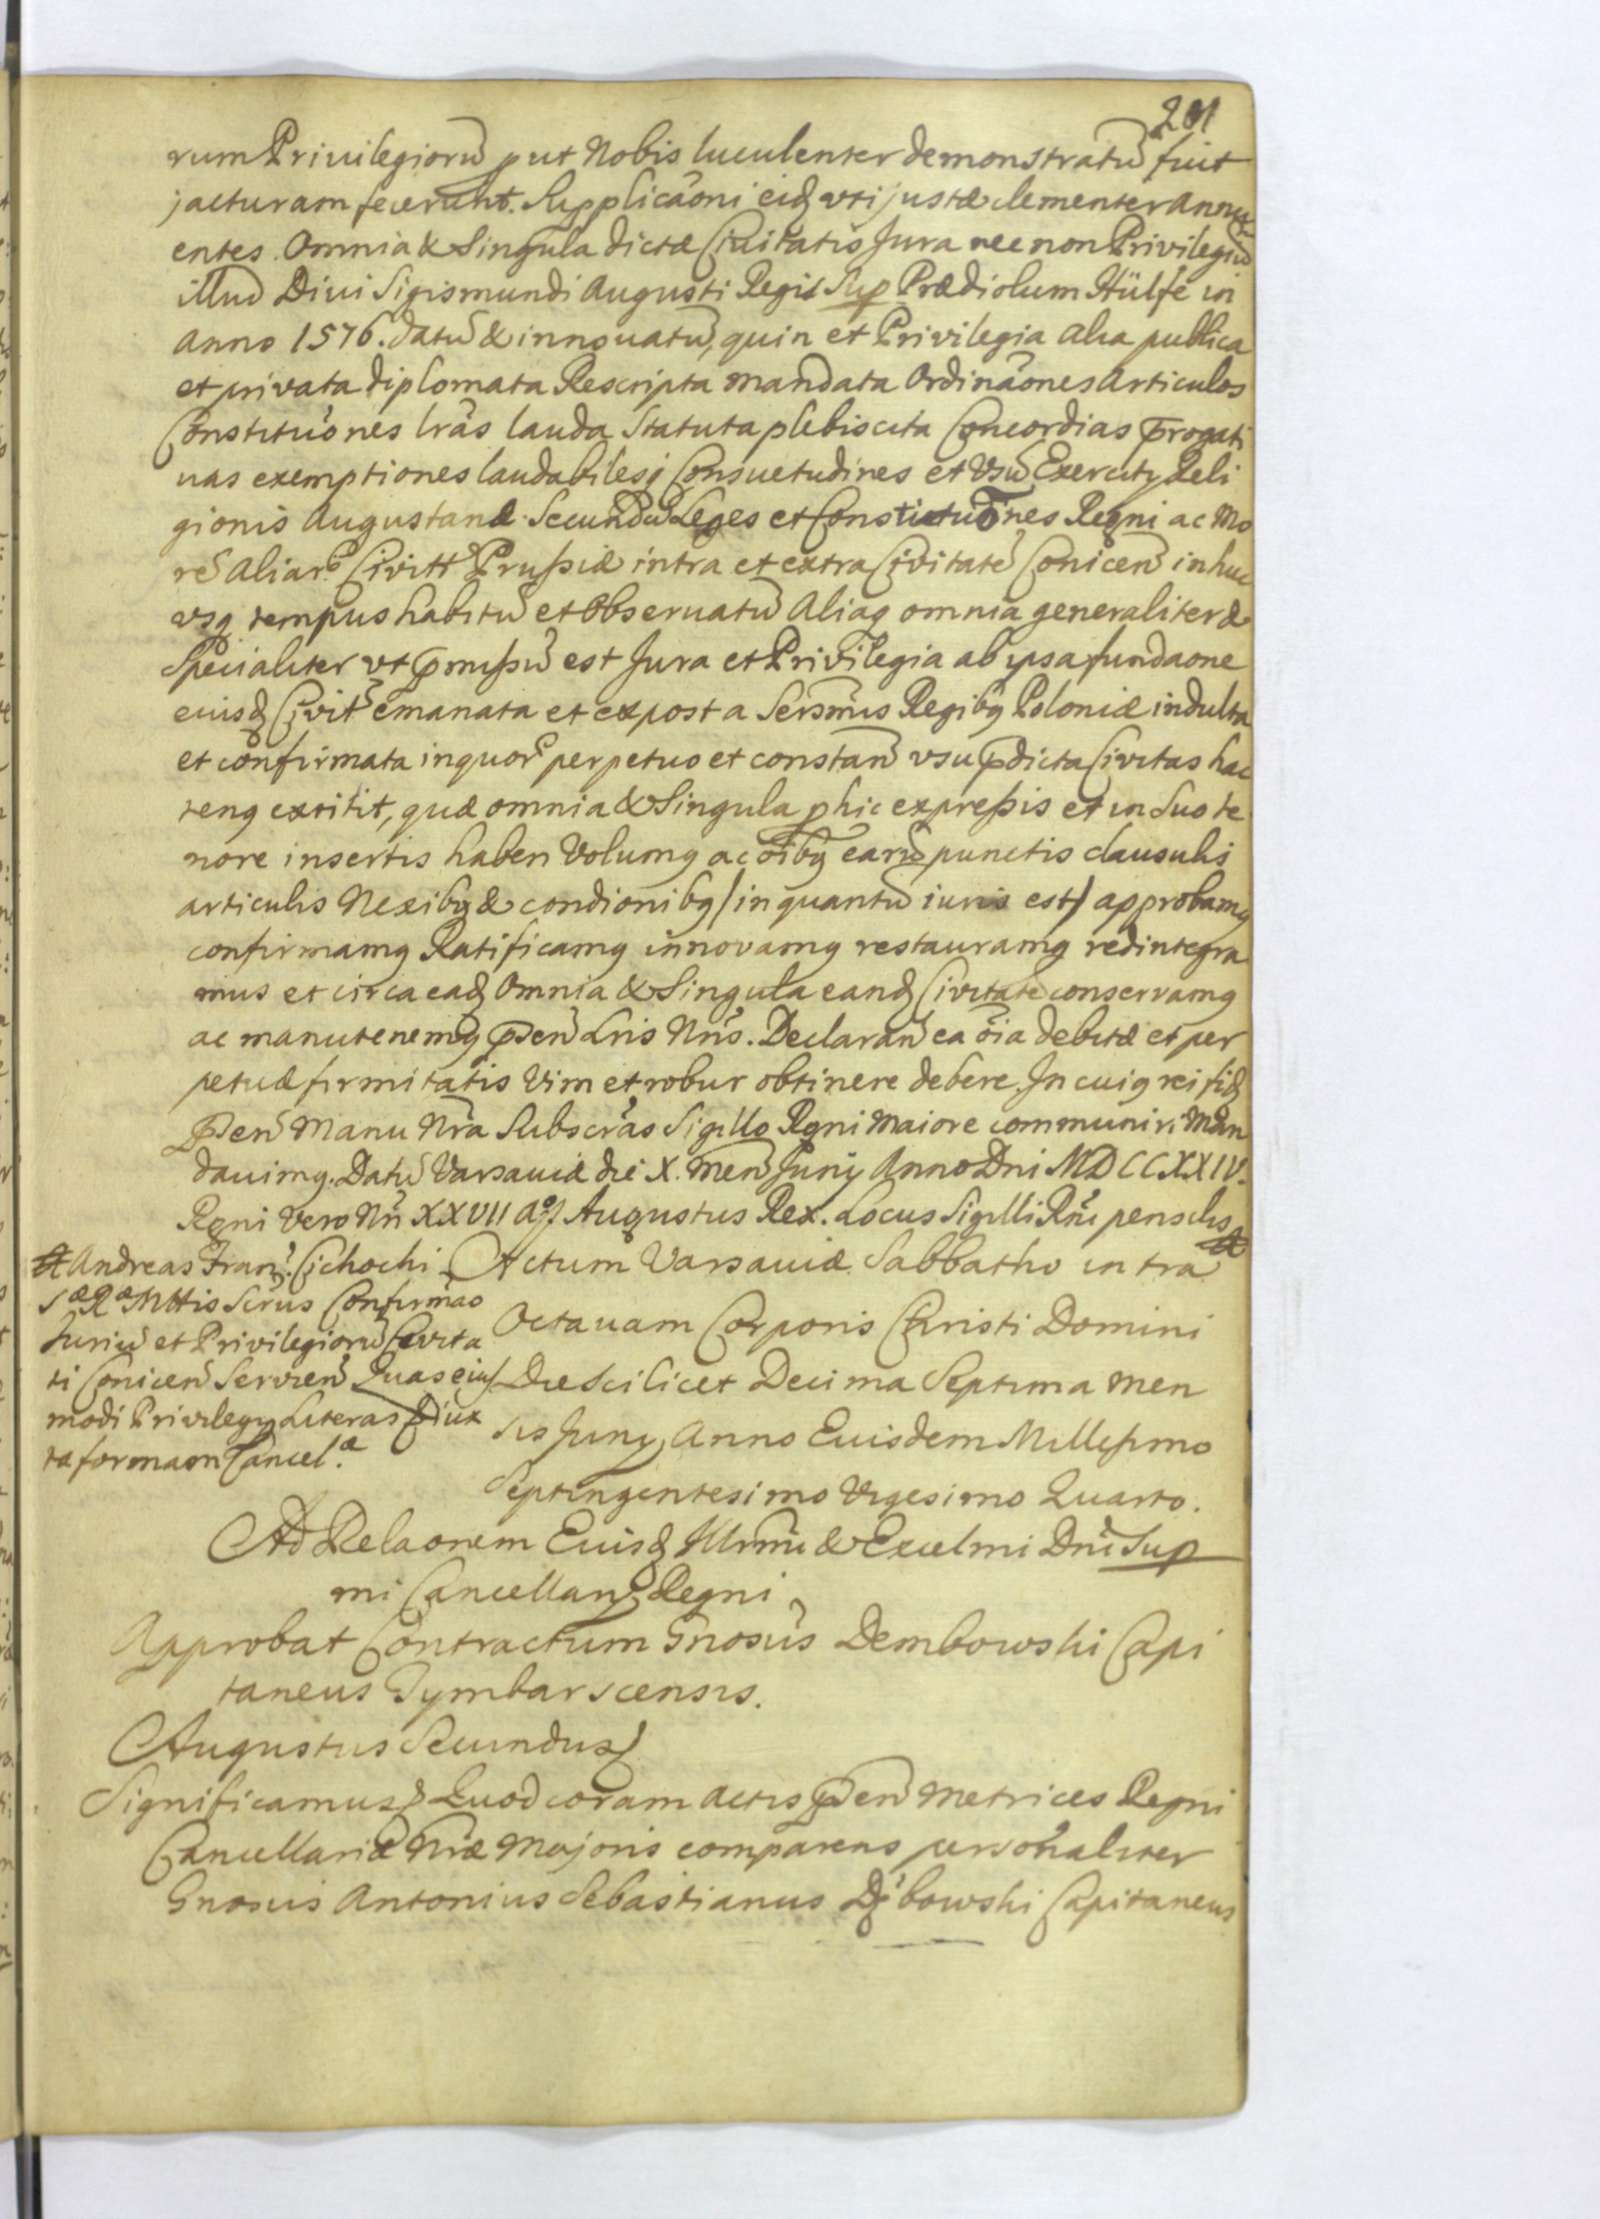 201
rum Privilegiorū put Nobis luculenter demonstratū fuit
jacturam fecerunt. Supplicaõni eidq vti justæ clementer Annu
entes. Omnia & Singula dictæ Civitatis Jura nec non Privilegiū
illud Divi Sigismundi Augusti Regis Sup Prædiolum Hülfe in
Anno 1576. datū & innovatū, quin et Privilegia alia publica
et privata diplomata Rescripta mandata Ordinaõnes Articulos
Constituõnes lrãs lauda Statuta plebiscita Concordias prrogati
vas exemptiones laudabilesq Consuetudines et Vsū Exercitÿ Reli
gionis Augustanæ Secundū Leges et Constitutiones Regni ac Mo
rē Aliar Civitt Prussiæ intra et extra Civitatē Conicen̄ in huc
vsq tempus habitū et Observatū Aliaq omnia generaliter &
Specialiter vt pmissū est Jura et Privilegia ab ipsa fundaone
eiusd Civit emanata et expost a Serenmis Regibq Poloniæ indulta
et confirmata in quor perpetuo et constan̄ vsu pdicta Civitas hac
tenq extitit, quæ omnia & Singula p hic expressis et in Suo te
nore insertis haben Volumq ac oĩbq earū punctis clausulis
articulis Nexibq & condionibq / in quantū iuris est / approbamq
confirmamq Ratificamq innovamq restauramq redintegra
mus et circa ead Omnia & Singula eand Civitatē conservamq
ac manutenemq pñ Lris Nris. Declaran̄ ea oĩa debitæ et per
petuæ firmitatis Vim et robur obtinere debere. In cuiq rei fid
Psen̄ Manu Nrã Subscrãs Sigillo Regni Maiore communiri Man
davimq. Datū Varsaviæ die X. Men̄ Junÿ Anno Dni MDCCXXIV.
Regni Vero Nri XXVII Aõ. Augustus Rex. Locus Sigilli Rni pensilis
Andreas Fran. Cichocki
Sæ Ræ Mttis Scrius Confirmao
Juriū et Privilegiorū Civita
ti Conicen̄ Servien̄ Quas eius
modi Privilegÿ Literas iux
ta formaon Cancel.æ
Actum Varsaviæ Sabbatho intra
Octavam Corporis Christi Domini
Die Scilicet Decima Septima Men
sis Junÿ Anno Euisdem Millesimo
Septingentesimo Vigesimo Quarto.
Ad Relaonem Euisd Illrmi & Excelmi Dni Sup
mi Cancellarÿ Regni
Approbat Contractum Gnosus Dembowski Capi
taneus Tymbarscensis.
Augustus Secundus
Significamus Quod coram Actis psen̄ Metrices Regni
Cancellariæ Nræ Majoris comparens personaliter
Gnosus Antonius Sebastianus Dębowski Capitaneus